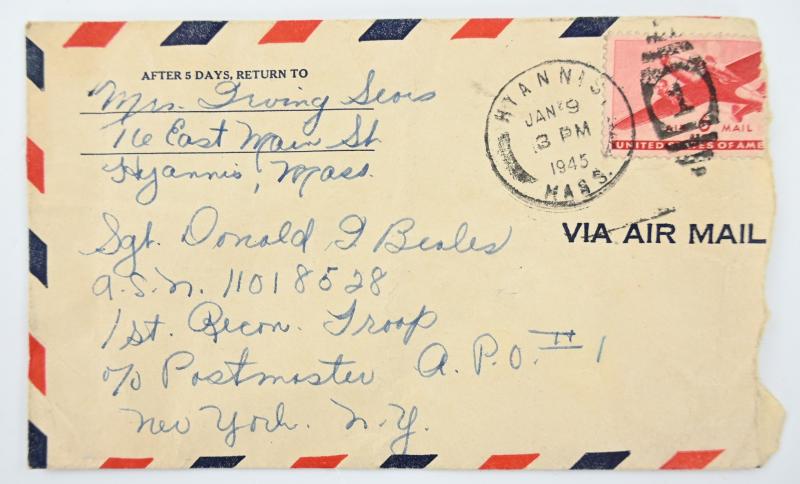 AFTER 5 DAYS, RETURN TO
Mrs. Irving Sears
76 East Main St.
Hyannis, Mass.
HYANNIS,
JAN 9
3 PM
1945
MASS.
1
AIR 6 MAIL
UNITED STATES OF AME
VIA AIR MAIL
Sgt. Donald F Beales
A.S.N. 11018528
1st. Recon. Troop
% Postmaster A.P.O. # 1
New York. N.Y.